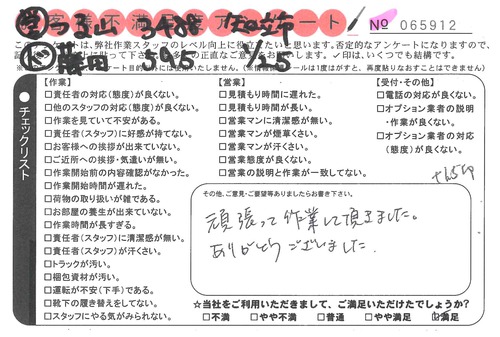 お客様不満足度アンケート
No 065912
3488
1/25
595
このアンケートは、弊社作業スタッフのレベル向上に役立てたいと思います。否定的なアンケートになりますので、
チェックリスト
【作業】
□責任者の対応(態度)が良くない。
□他のスタッフの対応(態度)が良くない。
□作業を見ていて不安がある。
□責任者(スタッフ)に好感が持てない。
□お客様への挨拶が出来ていない。
□ご近所への挨拶・気遣いが無い。
□作業開始前の内容確認がなかった。
□作業開始時間が遅れた。
□荷物の取り扱いが雑である。
□お部屋の養生が出来ていない。
□作業時間が長すぎる。
□責任者(スタッフ)に清潔感が無い。
□責任者(スタッフ)が汗くさい。
□トラックが汚い。
□梱包資材が汚い。
□運転が不安(下手)である。
□靴下の履き替えをしてない。
□スタッフにやる気がみられない。
【営業】
□見積もり時間に遅れた。
□見積もり時間が長い。
□営業マンに清潔感が無い。
□営業マンが煙草くさい。
□営業マンが汗くさい。
□営業態度が良くない。
□営業の説明と作業が一致してない。
【受付・その他】
□電話の対応が良くない。
□オプション業者の説明
・作業が良くない。
□オプション業者の対応
(態度)が良くない。
その他、ご意見・ご要望等ありましたらお書き下さい。
頑張って作業して頂きました。
ありがとうございました
☆当社をご利用いただきまして、ご満足いただけたでしょうか?
□不満 □やや不満 □普通 □やや満足 □満足